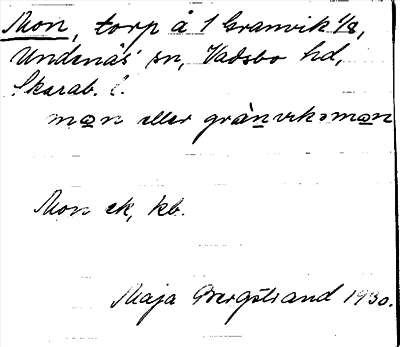 Mon, torp å 1 Granvik 1/8,
Undenäs sn, Vadsbo hd,
Skarab. l.
man eller grànviksman
Mon ek, kb.
Maja Bergstrand 1930.